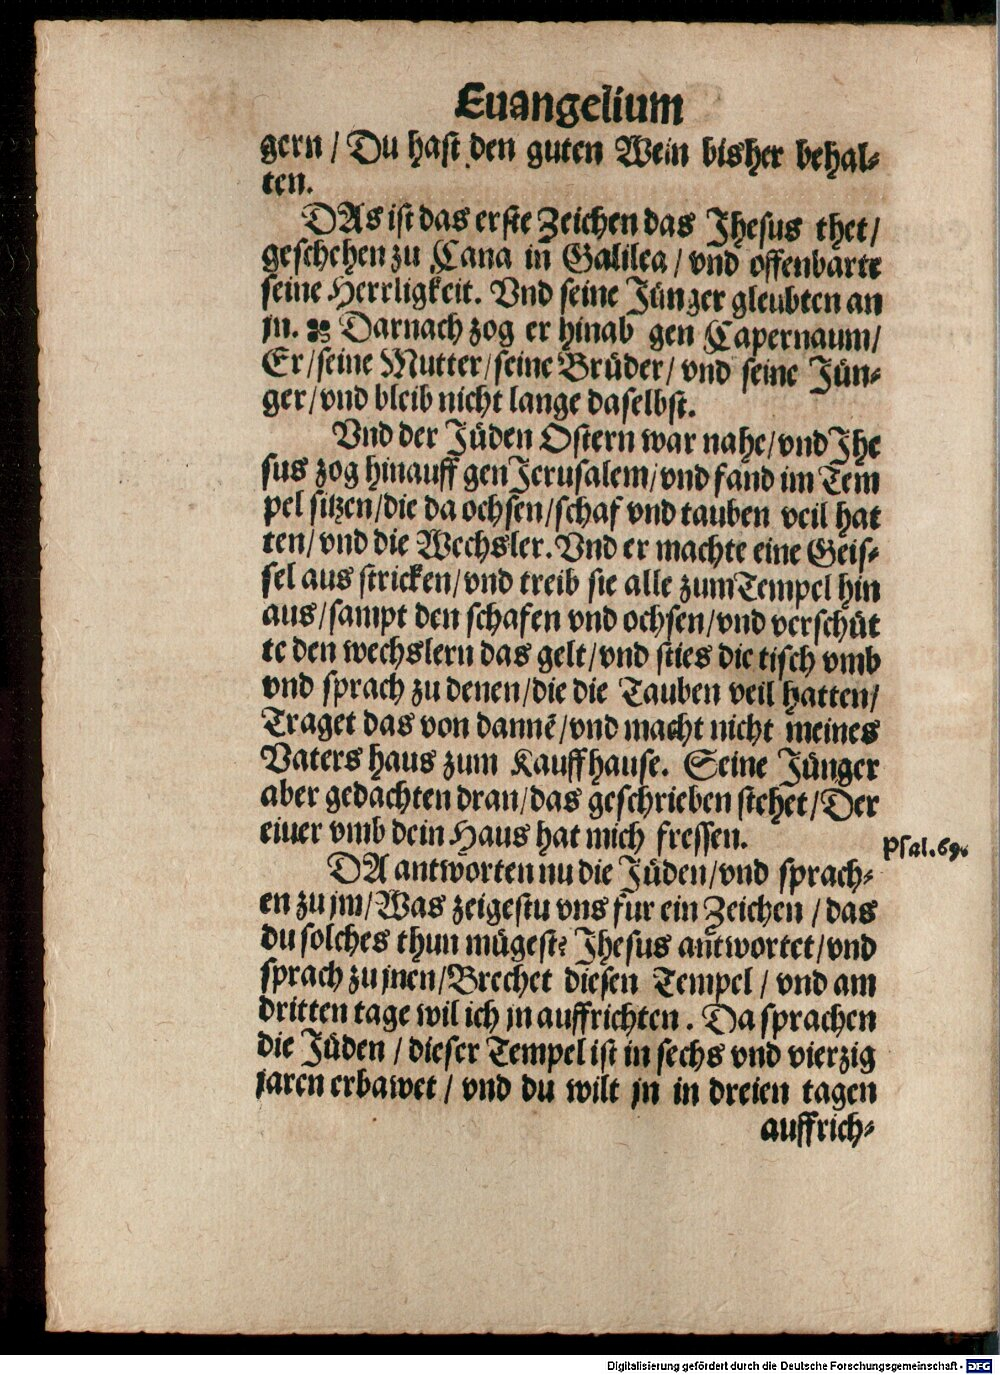 Euangelium
gern / Du hast den guten Wein bisher behal⸗
ten.
DAs ist das erste Zeichen das Jhesus thet /
geschehen zu Cana in Galilea / vnd offenbarte
seine Herrligkeit. Vnd seine Jünger gleubten an
jn. Darnach zog er hinab gen Capernaum /
Er / seine Mutter / seine Brüder / vnd seine Jün⸗
ger / vnd bleib nicht lange daselbst.
Vnd der Jüden Ostern war nahe / vnd Jhe
sus zog hinauff gen Jerusalem / vnd fand im Tem
pel sitzen / die da ochsen / schaf vnd tauben veil hat
ten / vnd die Wechsler. Vnd er machte eine Geis⸗
sel aus stricken / vnd treib sie alle zum Tempel hin
aus / sampt den schafen vnd ochsen / vnd verschüt
te den wechslern das gelt / vnd sties die tisch vmb
vnd sprach zu denen / die die Tauben veil hatten /
Traget das von dannē / vnd macht nicht meines
Vaters haus zum Kauffhause. Seine Jünger
aber gedachten dran / das geschrieben stehet / Der
eiuer vmb dein Haus hat mich fressen.
Psal. 69.
DA antworten nu die Jüden / vnd sprach⸗
en zu jm / Was zeigestu vns fur ein Zeichen / das
du solches thun mügest? Jhesus antwortet / vnd
sprach zu jnen / Brechet diesen Tempel / vnd am
dritten tage wil ich jn auffrichten. Da sprachen
die Jüden / dieser Tempel ist in sechs vnd vierzig
jaren erbawet / vnd du wilt jn in dreien tagen
auffrich⸗
Digitalisierung gefördert durch die Deutsche Forschungsgemeinschaft - DFG